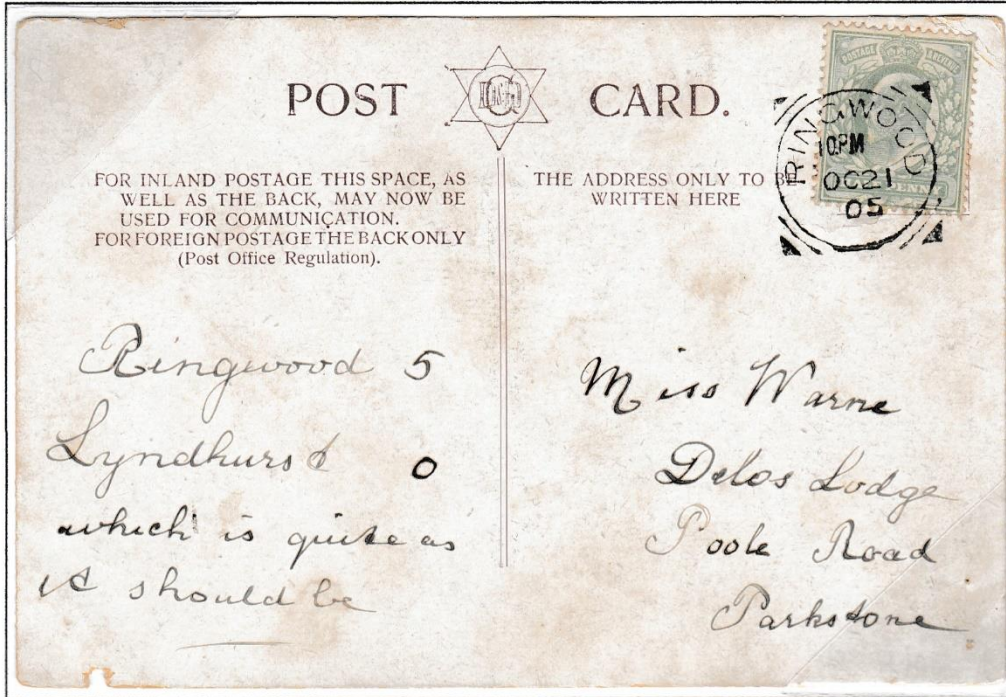 POST CARD.
FOR INLAND POSTAGE THIS SPACE, AS
WELL AS THE BACK, MAY NOW BE
USED FOR COMMUNICATION.
FOR FOREIGN POSTAGE THE BACK ONLY
(Post Office Regulation).
THE ADDRESS ONLY TO BE
WRITTEN HERE
RINGWOOD
10PM
OC21
05
POSTAGE
PENNY
Ringwood 5
Lyndhurst 0
which is quite as
it should be
Miss Warne
Delos Lodge
Poole Road
Parkstone